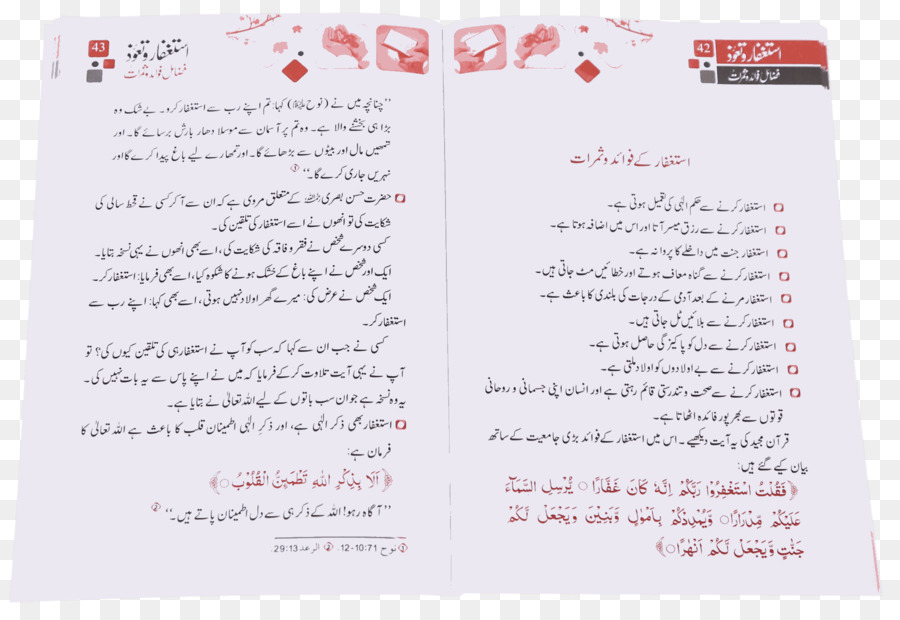 42
استغفار و تعوّذ
فضائل فوائد و ثمرات
استغفار کے فوائد و ثمرات
استغفار کرنے سے حکم الٰہی کی تعمیل ہوتی ہے۔
استغفار کرنے سے رزق میسر آتا اور اس میں اضافہ ہوتا ہے۔
استغفار جنت میں داخلے کا پروانہ ہے۔
استغفار کرنے سے گناہ معاف ہوتے اور خطائیں مٹ جاتی ہیں۔
استغفار مرنے کے بعد آدمی کے درجات کی بلندی کا باعث ہے۔
استغفار کرنے سے بلائیں ٹل جاتی ہیں۔
استغفار کرنے سے دل کو پاکیزگی حاصل ہوتی ہے۔
استغفار کرنے سے بے اولادوں کو اولاد ملتی ہے۔
استغفار کرنے سے صحت و تندرستی قائم رہتی ہے اور انسان اپنی جسمانی و روحانی
قوتوں سے بھرپور فائدہ اٹھاتا ہے۔
قرآن مجید کی یہ آیت دیکھیے۔ اس میں استغفار کے فوائد بڑی جامعیت کے ساتھ
بیان کیے گئے ہیں:
﴿فَقُلْتُ اسْتَغْفِرُوْا رَبَّكُمْ اِنَّهٗ كَانَ غَفَّارًا○ يُّرْسِلِ السَّمَآءَ
عَلَيْكُمْ مِّدْرَارًا○ وَّيُمْدِدْكُمْ بِاَمْوَالٍ وَّبَنِيْنَ وَيَجْعَلْ لَّكُمْ
جَنّٰتٍ وَّيَجْعَلْ لَّكُمْ اَنْهٰرًا○﴾
43
استغفار و تعوّذ
فضائل فوائد و ثمرات
’’چنانچہ میں نے (نوح علیہ السلام) کہا: تم اپنے رب سے استغفار کرو۔ بے شک وہ
بڑا ہی بخشنے والا ہے۔ وہ تم پر آسمان سے موسلا دھار بارش برسائے گا۔ اور
تمھیں مال اور بیٹوں سے بڑھائے گا۔ اور تمھارے لیے باغ پیدا کرے گا اور
نہریں جاری کرے گا۔‘‘ ①
حضرت حسن بصری رحمہ اللہ کے متعلق مروی ہے کہ ان سے آ کر کسی نے قحط سالی کی
شکایت کی تو انھوں نے اسے استغفار کی تلقین کی۔
کسی دوسرے شخص نے فقر و فاقہ کی شکایت کی، اسے بھی انھوں نے یہی نسخہ بتایا۔
ایک اور شخص نے اپنے باغ کے خشک ہونے کا شکوہ کیا، اسے بھی فرمایا: استغفار کر۔
ایک شخص نے عرض کی: میرے گھر اولاد نہیں ہوتی، اسے بھی کہا: اپنے رب سے
استغفار کر۔
کسی نے جب ان سے کہا کہ سب کو آپ نے استغفار ہی کی تلقین کیوں کی؟ تو
آپ نے یہی آیت تلاوت کر کے فرمایا کہ میں نے اپنے پاس سے یہ بات نہیں کی۔
یہ وہ نسخہ ہے جو ان سب باتوں کے لیے اللہ تعالیٰ نے بتایا ہے۔
استغفار بھی ذکر الٰہی ہے، اور ذکر الٰہی اطمینان قلب کا باعث ہے اللہ تعالیٰ کا
فرمان ہے:
﴿اَلَا بِذِكْرِ اللّٰهِ تَطْمَىِٕنُّ الْقُلُوْبُ○﴾
’’آگاہ رہو! اللہ کے ذکر ہی سے دل اطمینان پاتے ہیں۔‘‘ ②
① نوح 71:10-12. ② الرعد 13:29.